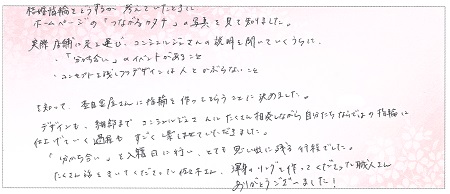 結婚指輪をどうするか考えていたときに
ホームページの「つながるカタチ」の写真を見て知りました。
実際店舗に足を運び、コンシェルジュさんの説明を聞いていくうちに、
・「分かち合い」のイベントがあること
・コンセプトを残しつつデザインは人とかぶらないこと
を知って、杢目金屋さんに指輪を作ってもらうことに決めました。
デザインも、細部までコンシェルジュさんにたくさん相談しながら自分たちならではの指輪に
仕上げていく過程もすごく楽しませていただきました。
「分かち合い」を入籍日に行い、とても思い出に残る行程でした。
たくさん話をきいてくださった 渾身のリングを作ってくださった職人さん
ありがとうございました！